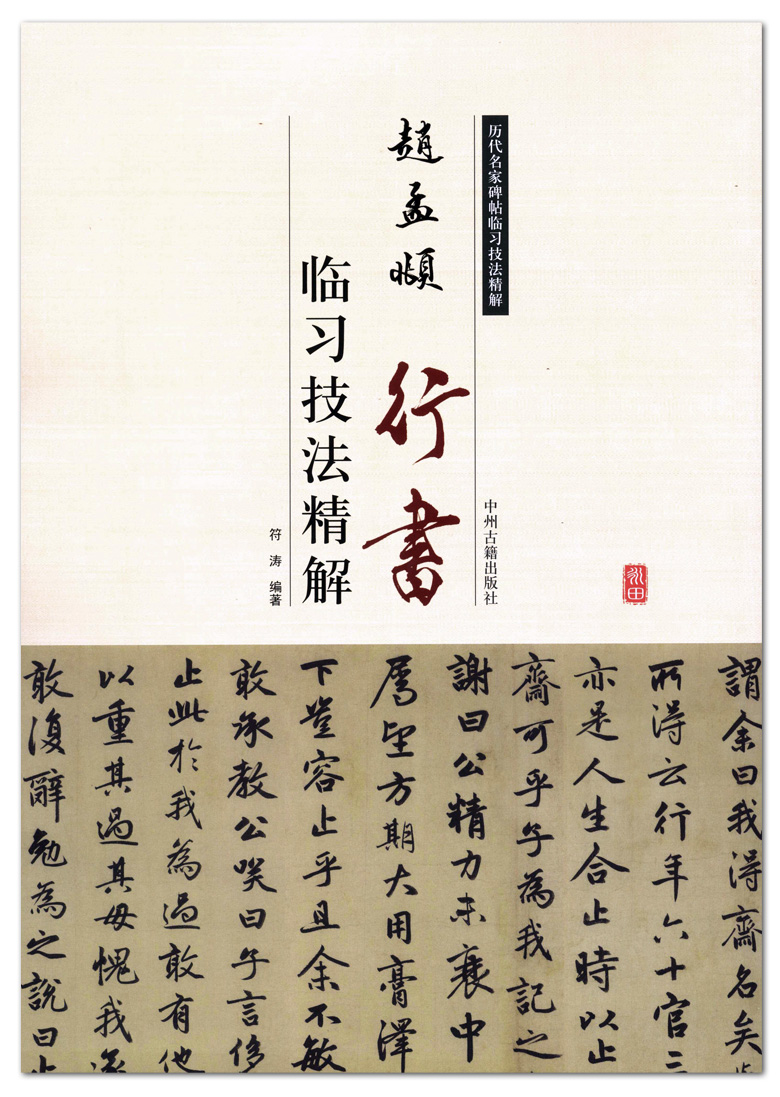 历代名家碑帖临习技法精解
中州古籍出版社
趙孟頫
行書
临习技法精解
符涛 编著
謂余曰我得齋名矣
所得云行年六十官二
亦是人生合止時以止
齋可乎子為我記之
謝曰公精力未衰中
屬望方期大用膏澤
下豈容止乎且余不敏
敢承教公咲曰子言侈
止此於我為過敢有他
以重其過其毋愧我
敢復辭勉為之説曰